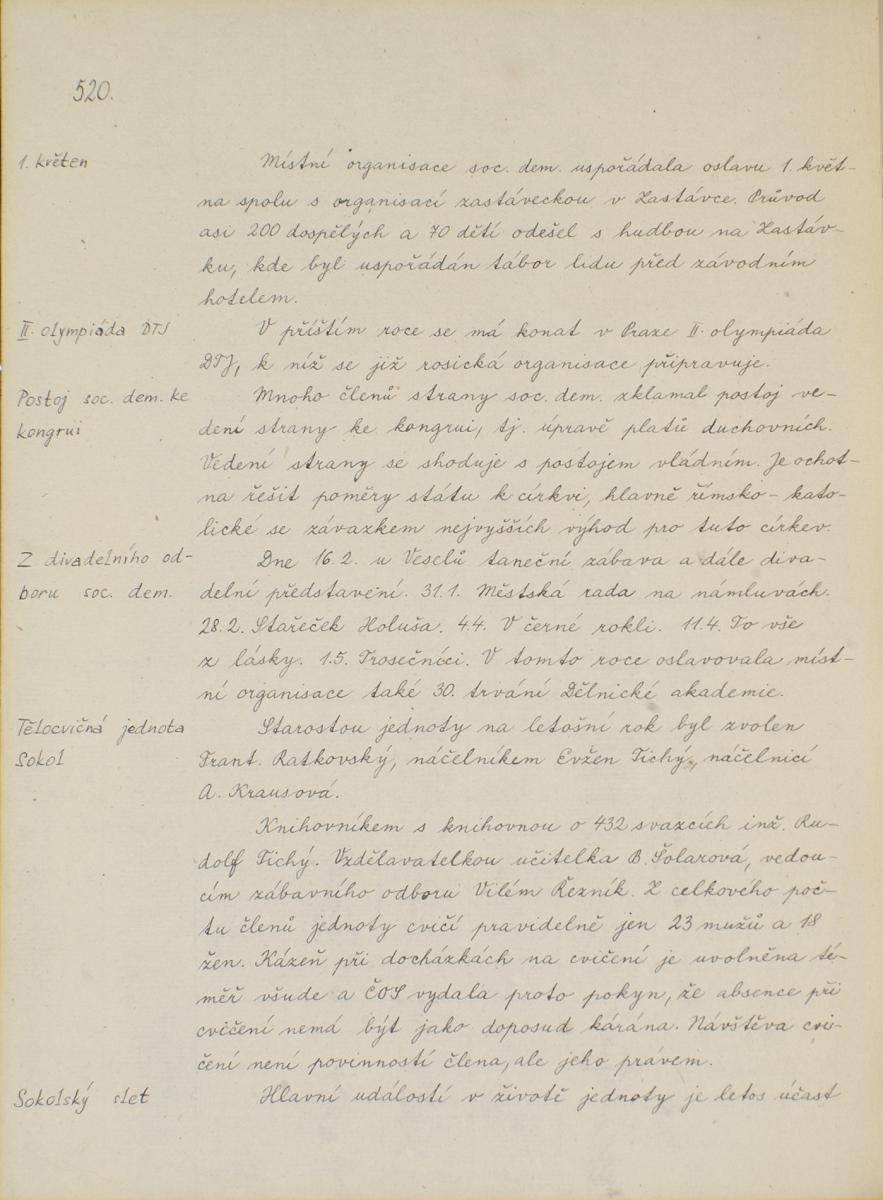 520.
1. květen
Místní organisace soc. dem. uspořádala oslavu 1. květ-
na spolu s organisací zastáveckou v Zastávce. Průvod
asi 200 dospělých a 70 dětí odešel s hudbou na Zastáv-
ku, kde byl uspořádán tábor lidu před závodním
hotelem.
II. olympiáda DTJ
V příštím roce se má konat v Praze II. olympiáda
DTJ, k níž se již rosická organisace připravuje.
Postoj soc. dem. ke
kongrui
Mnoho členů strany soc. dem. zklamal postoj ve-
dení strany ke kongrui, tj. úpravě platů duchovních.
Vedení strany se shoduje s postojem vládním. Je ochot-
na řešit poměry státu k církvi, hlavně římsko-kato-
lické se závazkem nejvyšších výhod pro tuto církev.
Z divadelního od-
boru soc. dem.
Dne 16.2. u Veselů taneční zábava a dále diva-
delní představení. 31.1. Městská rada na námluvách.
28.2. Stařeček Holuša. 4.4. V černé rokli. 11.4. To vše
z lásky. 1.5. Trosečníci. V tomto roce oslavovala míst-
ní organisace také 30. trvání Dělnické akademie.
Tělocvičná jednota
Sokol
Starostou jednoty na letošní rok byl zvolen
Frant. Ratkovský, náčelníkem Evžen Tichý, náčelnicí
A. Krausová.
Knihovníkem s knihovnou o 432 svazcích inž. Ru-
dolf Tichý. Vzdělavatelkou učitelka B. Šolarová, vedou-
cím zábavního odboru Vilém Řezník. Z celkového poč-
tu členů jednoty cvičí pravidelně jen 23 mužů a 18
žen. Kázeň při docházkách na cvičení je uvolněna té-
měř všude a ČOS vydala proto pokyn, že absence při
cvičení nemá být jako doposud kárána. Návštěva cvi-
čení není povinností člena, ale jeho právem.
Sokolský slet
Hlavní událostí v životě jednoty je letos účast